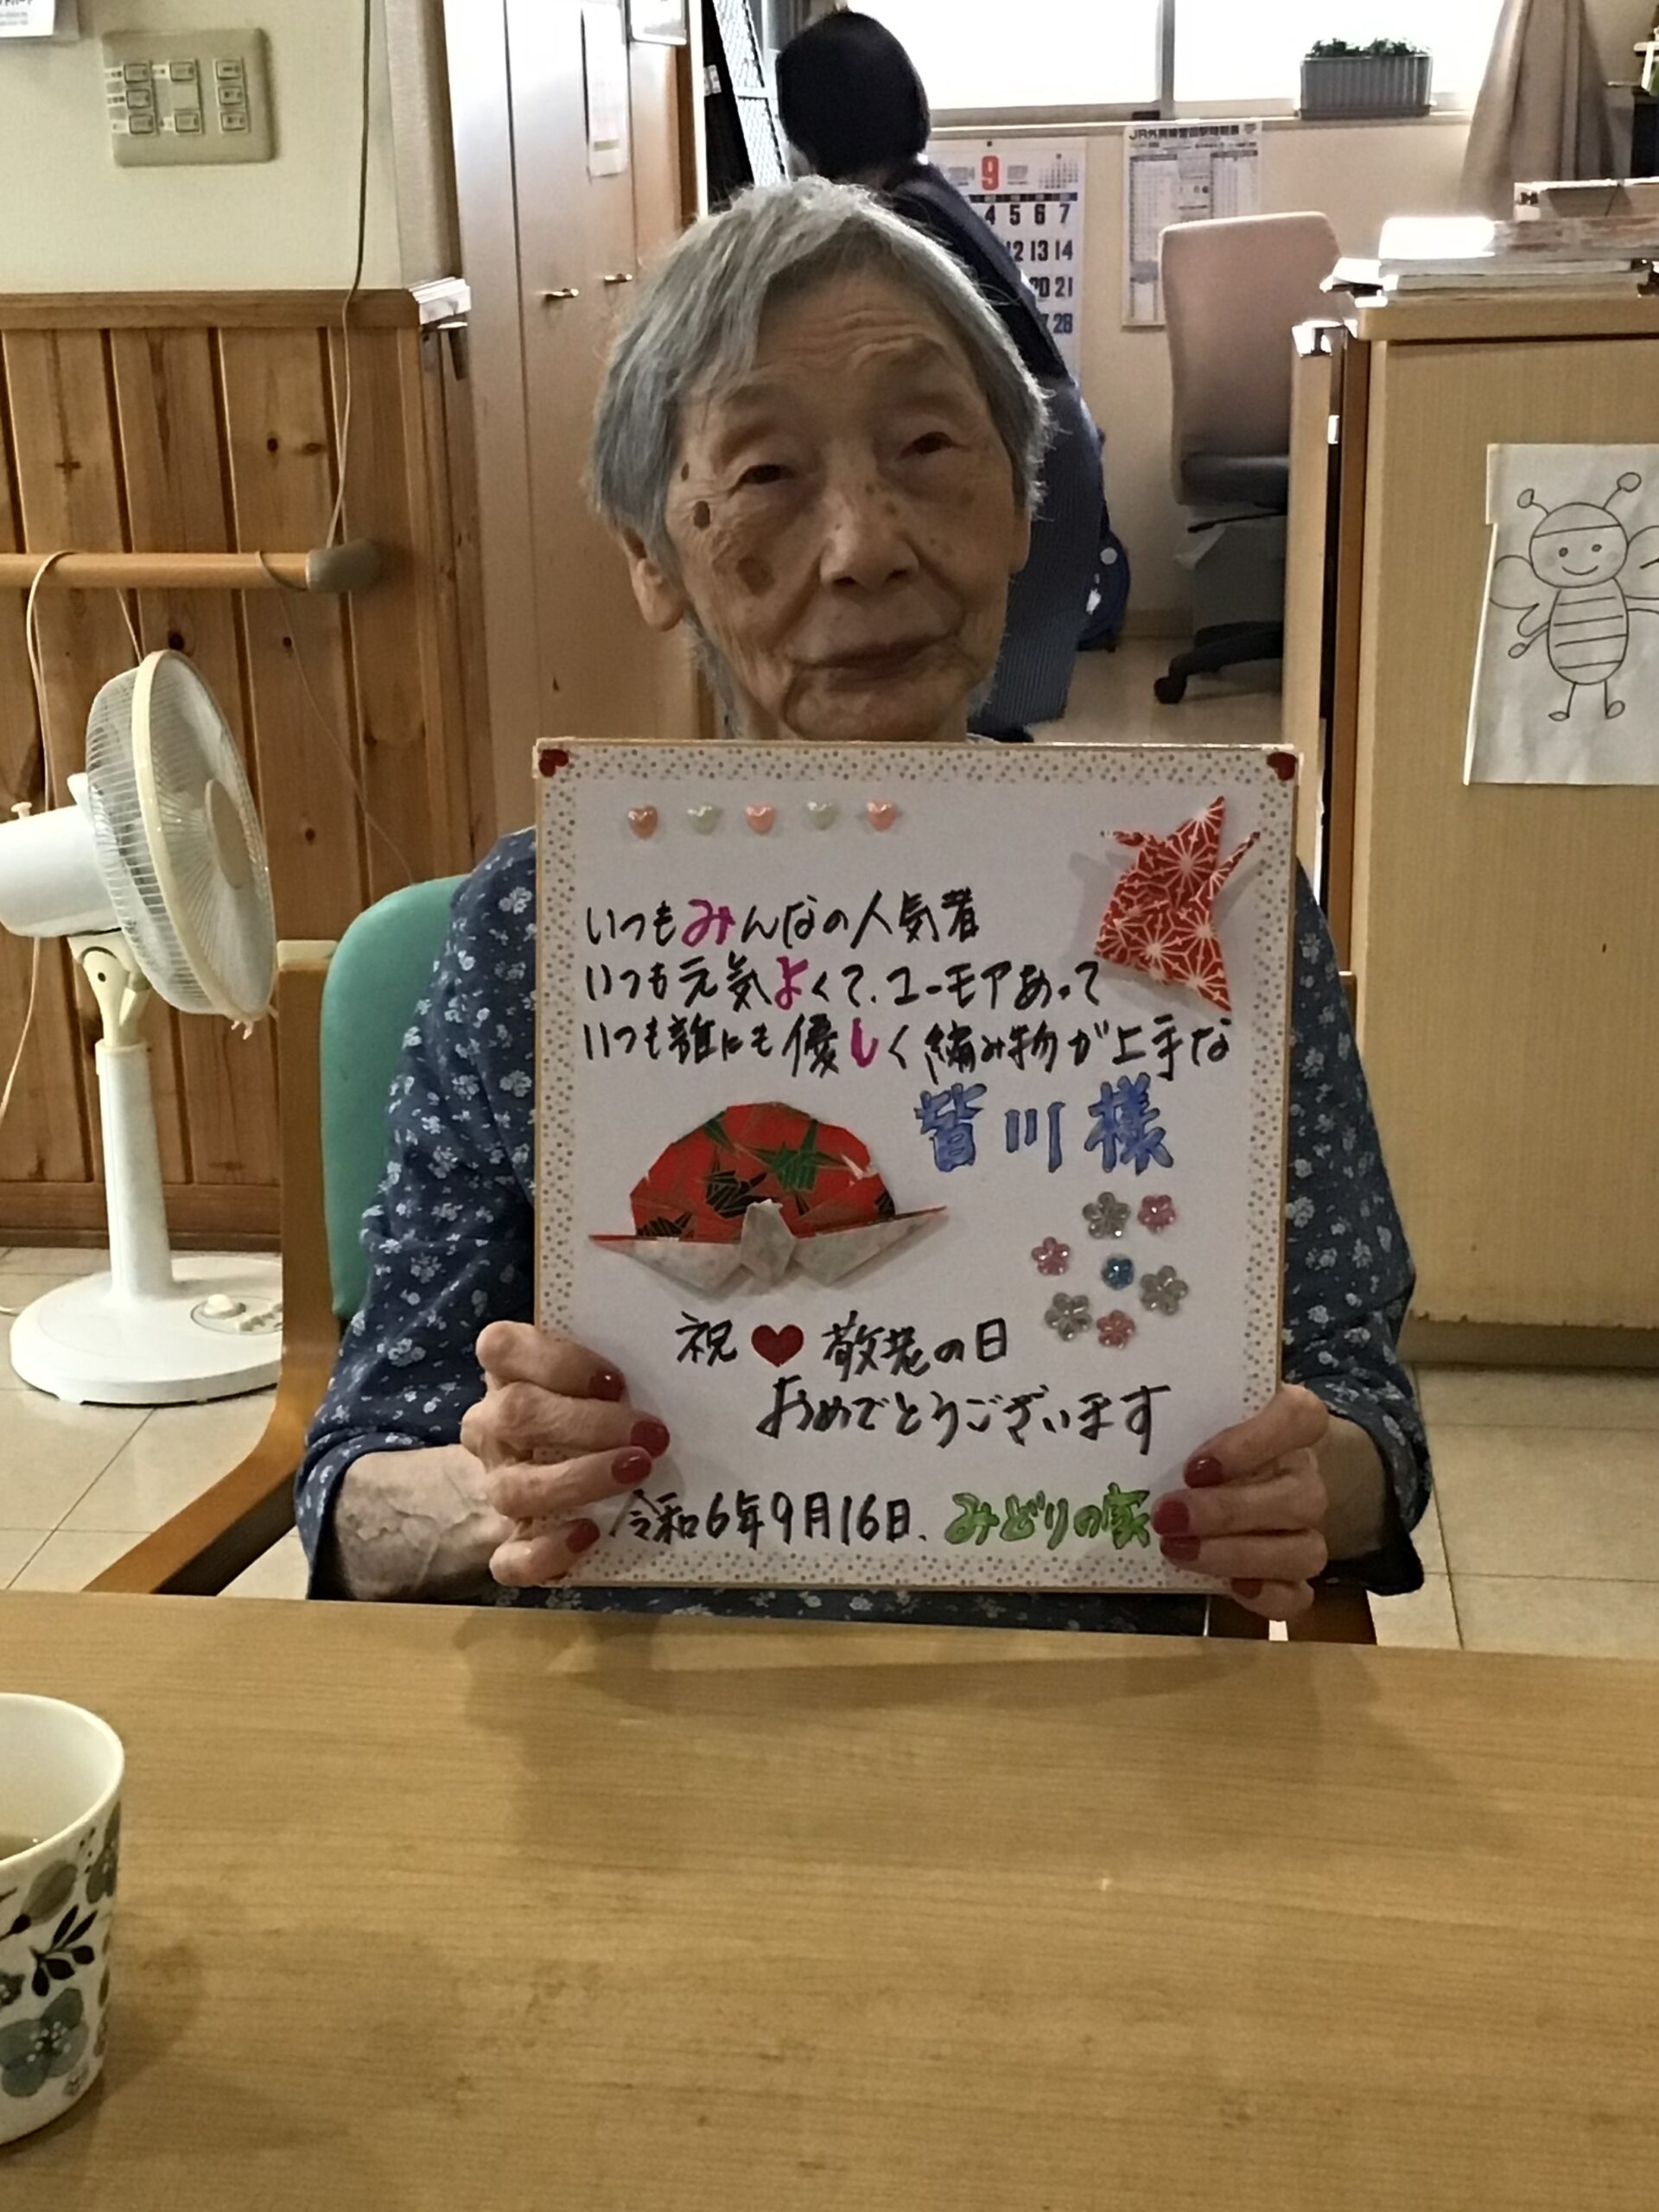 いつもみんなの人気者
いつも元気よくて、ユーモアあって
いつも誰にも優しく編み物が上手な
皆川様
祝 敬老の日
おめでとうございます
令和6年9月16日、みどりの家
9
4 5 6 7
12 13 14
20 21
28